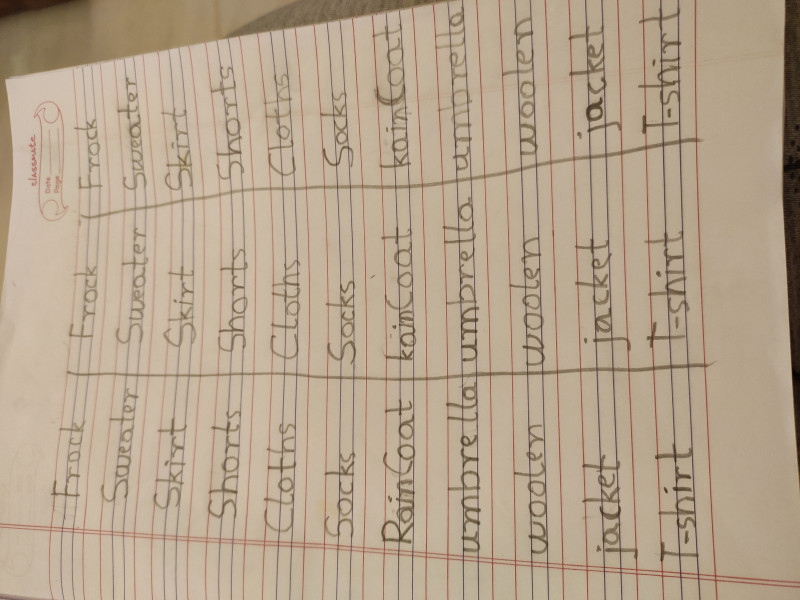 classmate
Date
Page
Frock Frock Frock
Sweater Sweater Sweater
Skirt Skirt Skirt
Shorts Shorts Shorts
Cloths Cloths Cloths
Socks Socks Socks
RainCoat kainCoat kainCoat
umbrella umbrella umbrella
woolen woolen woolen
jacket jacket jacket
T-shirt T-shirt T-shirt